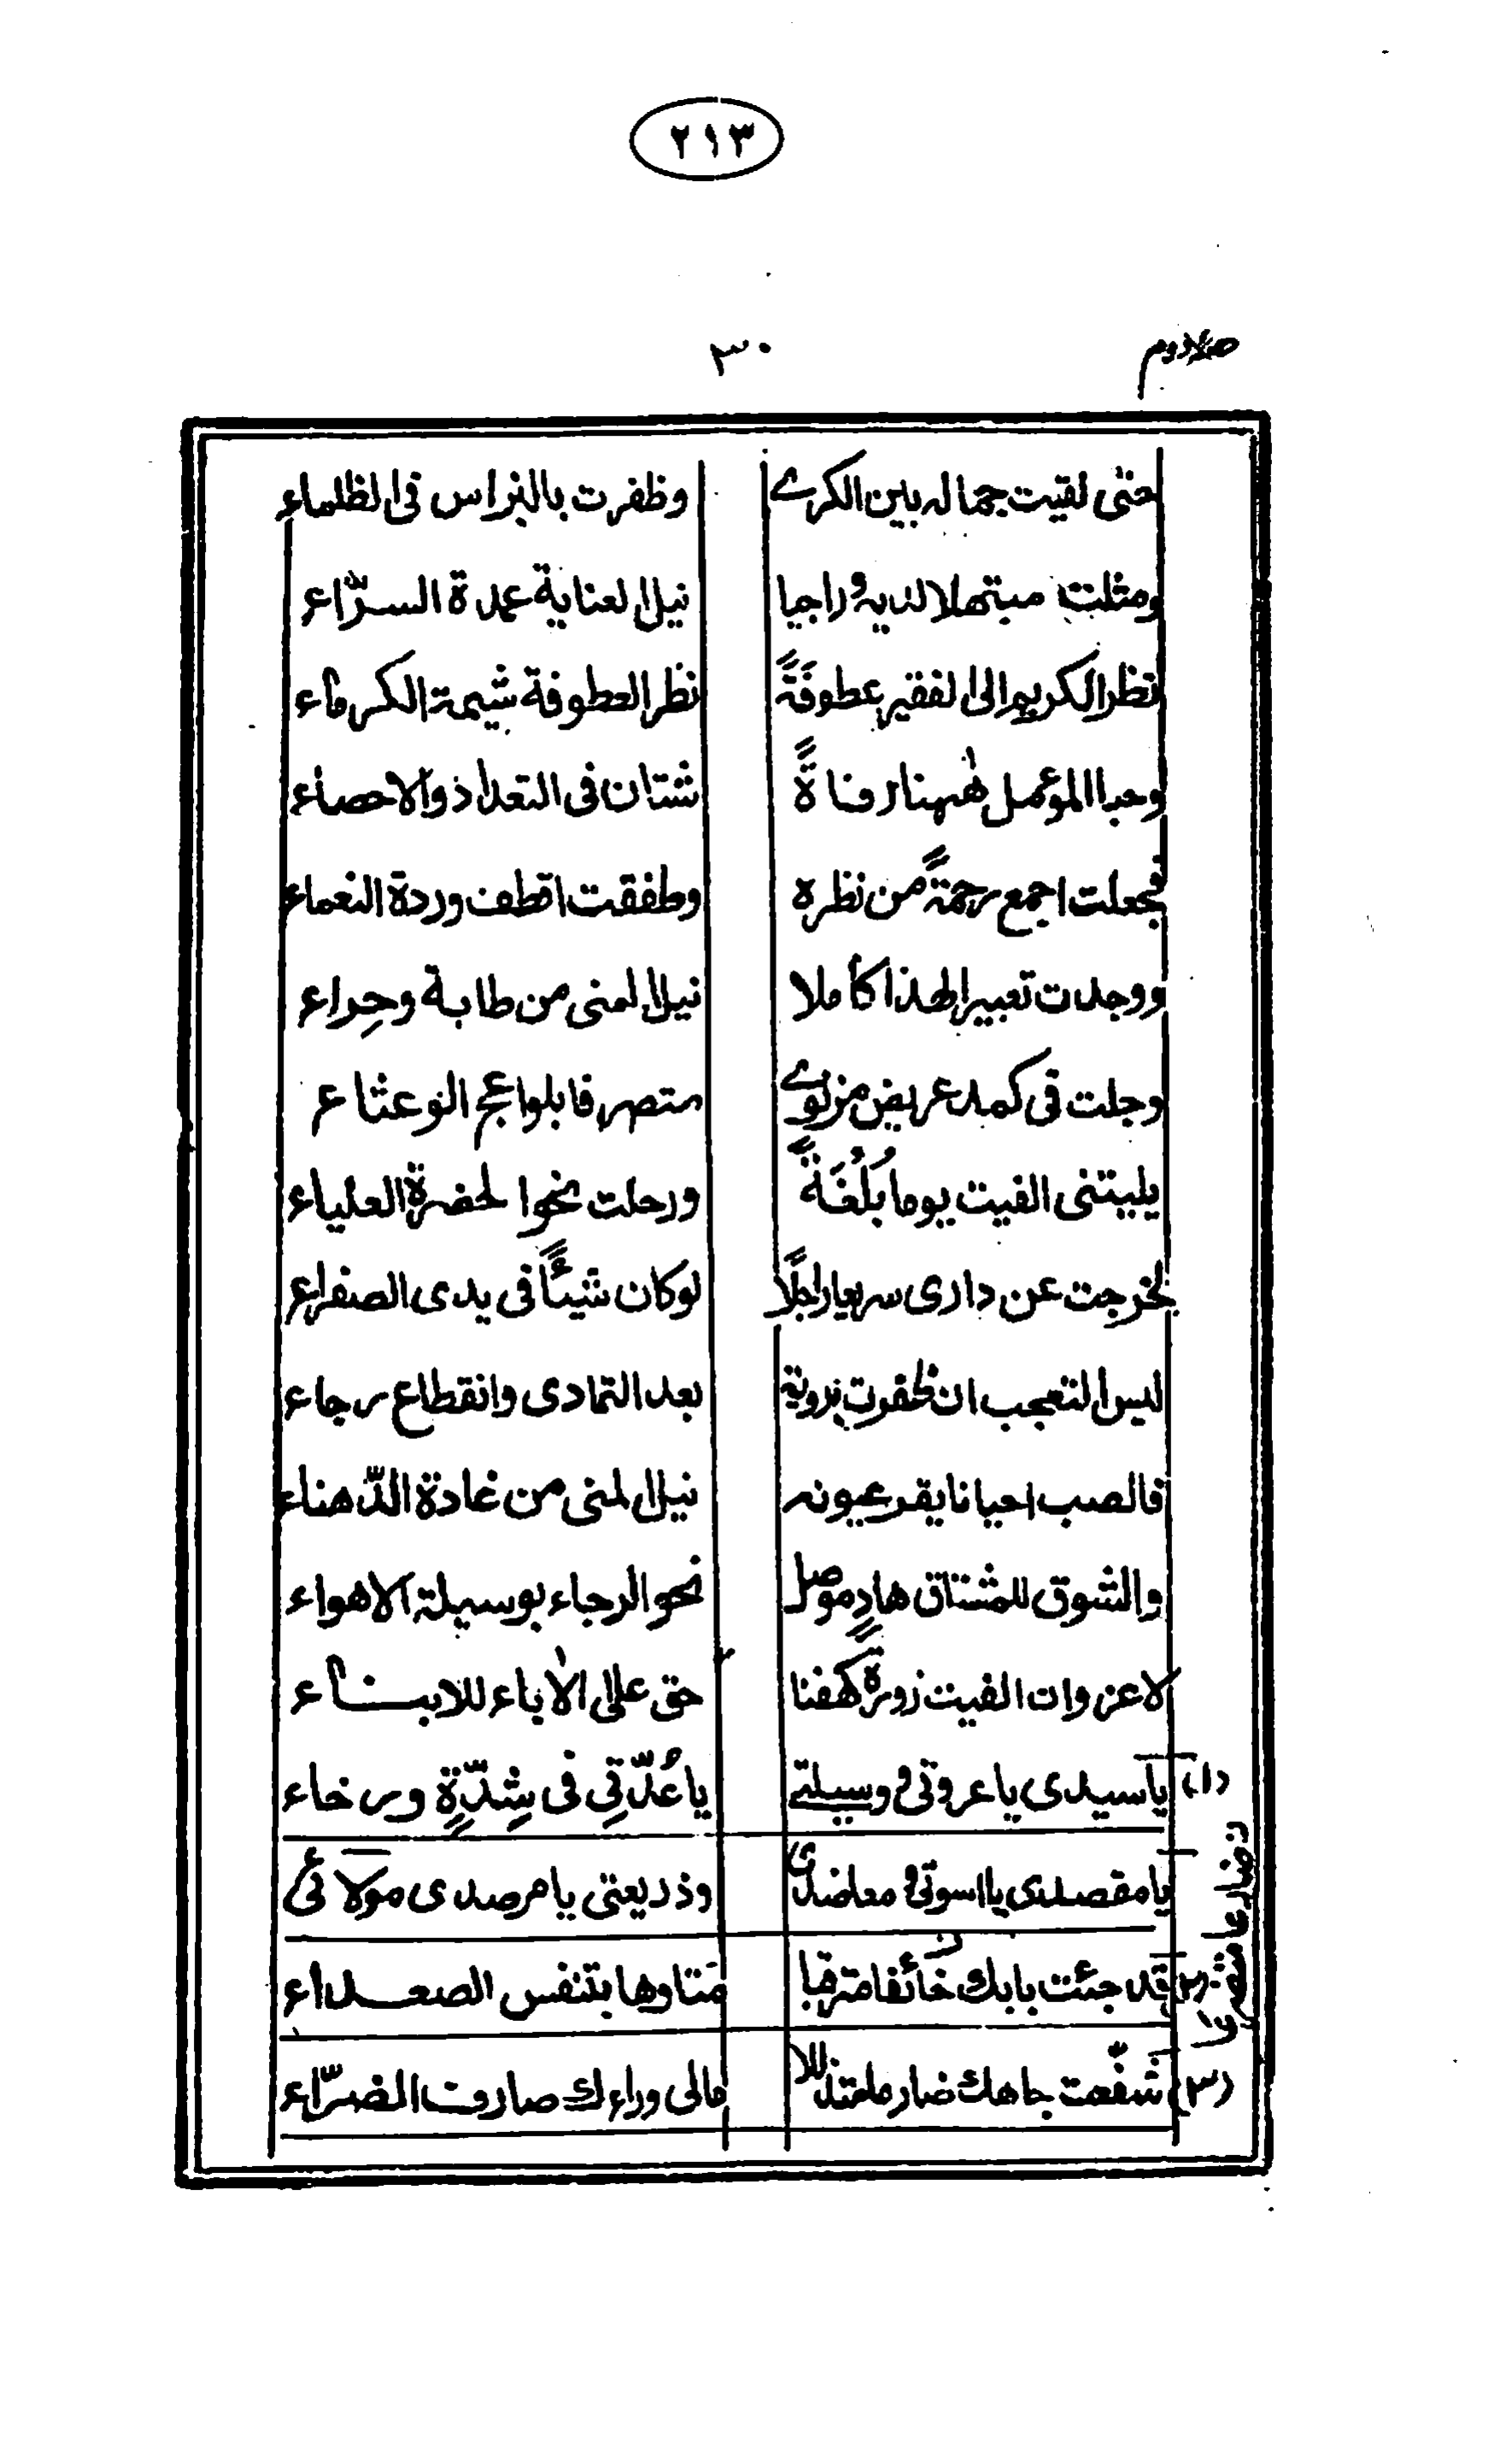 ٢١٣
٣٠
حتى لقيت جماله بين الكرے وظفرت بالنبراس فى الظلماء
ومثلت مبتهلا لديه وراجيا نيل العناية عمدة السرّاء
نظر الكريم الى الفقير عطوفَةً نظر العطوفة شيمة الكرماء
وحبا المؤمل ههنا رفاةً شتان فى التعداد والاحصاء
فجعلت اجمع رحمةً من نظره وطفقت اقطف وردة النعماء
ووجدت تعبيرا لهذا كاملا نيل المنى من طابة وحِراء
وجلت فى كمد عريض من نوے متصرفا بلواعج النوعثاء
يليتنى الفيت يوما بُلُغَةً ورحلت نحو الحضرة العلياء
لخرجت عن دارى سريعا راجلًا لوكان شيئًا فى يدى الصفراء
ليس التعجب ان ظفرت بروية بعد التمادى وانقطاع رجاء
فالصب احيانا يقر عيونه نيل المنى من غادة الدّهناء
والشوق للمشتاق هادٍ موصل نحو الرجاء بوسيلة الاهواء
لاعزوان الفيت زورةً كهفنا حق على الأباء للابناء
(١) ياسيدى ياعروتى وسيلتے ياعُدّتِي فى شِدّةٍ ورخاء
يامقصدى يااسوتى ومعاضدى وذريعتى يامرصدى مولائى
(٢) قد جئت بابك خائفا مترقبا متاوها بتنفس الصعداء
(٣) شفّعت جاهك ضارعا متذللا مالى وراءك صارف الضرّاء